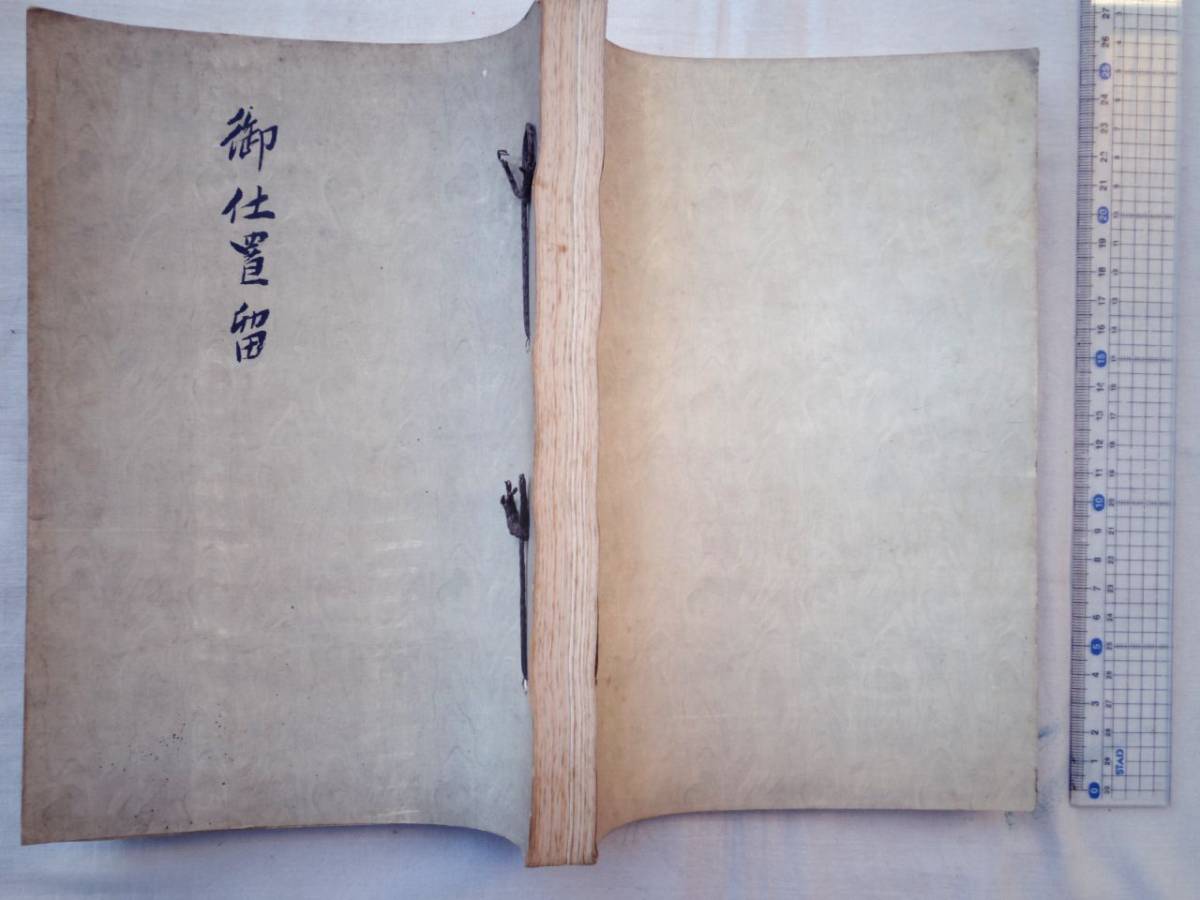 御仕置留
27
26
25
24
23
22
21
20
19
18
17
16
15
14
13
12
11
10
9
8
7
6
5
4
3
2
1
0
STAD